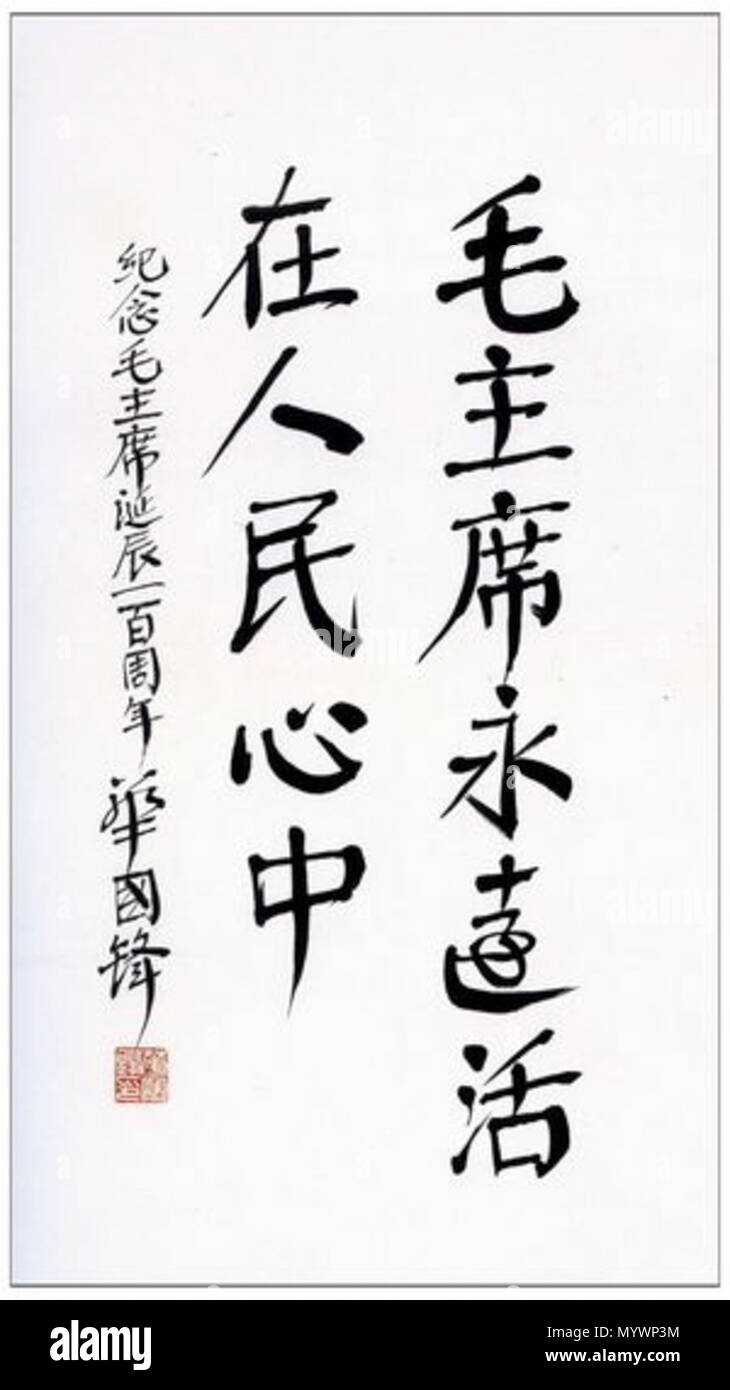 毛主席永遠活
在人民心中
纪念毛主席诞辰一百周年 華國锋
alamy
Image ID: MYWP3M
www.alamy.com